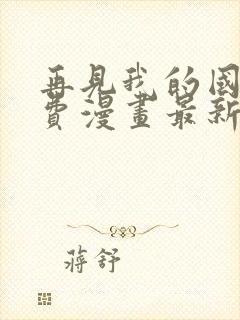 再見我的國
費漫畫最新
蔣舒